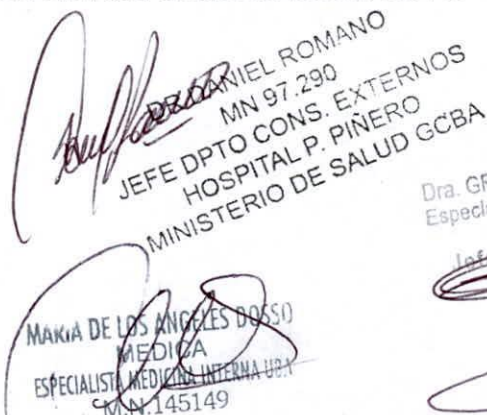 DR. DANIEL ROMANO
MN 97.290
JEFE DPTO CONS. EXTERNOS
HOSPITAL P. PIÑERO
MINISTERIO DE SALUD GCBA
Dra.
Especi
Jef
MARIA DE LOS ANGELES DOSSO
MEDICA
ESPECIALISTA MEDICINA INTERNA UBA
M.N.145149